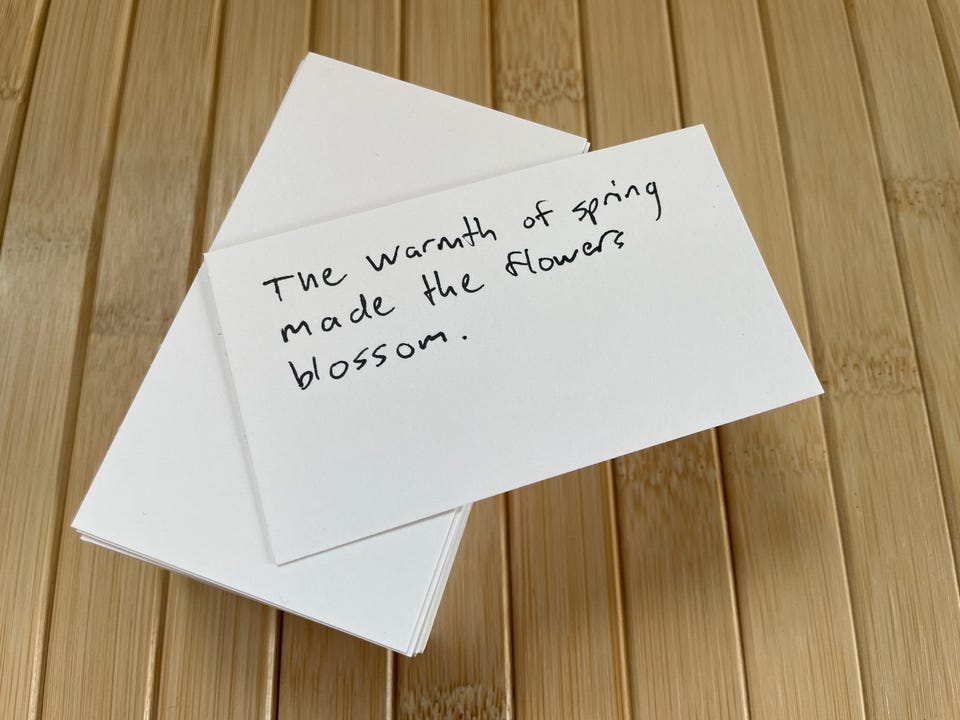 The warmth of spring
made the flowers
blossom.